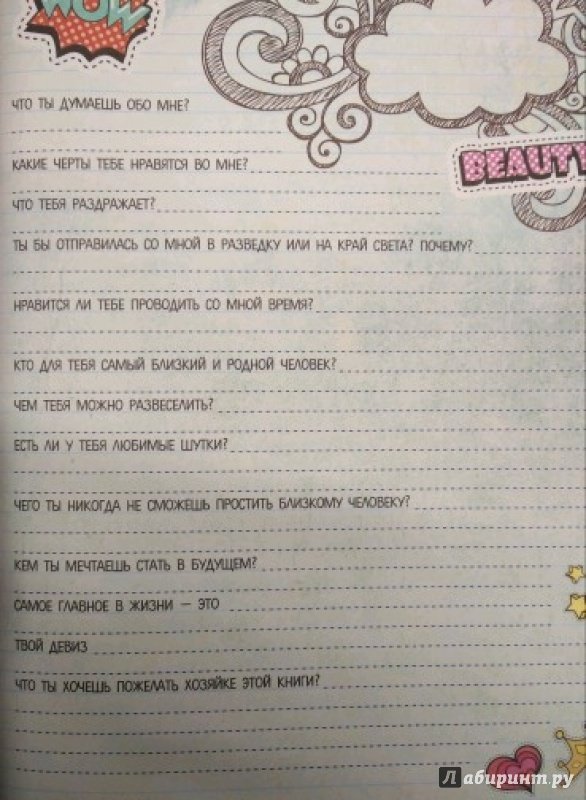 WOW
ЧТО ТЫ ДУМАЕШЬ ОБО МНЕ?
BEAUTY
КАКИЕ ЧЕРТЫ ТЕБЕ НРАВЯТСЯ ВО МНЕ?
ЧТО ТЕБЯ РАЗДРАЖАЕТ?
ТЫ БЫ ОТПРАВИЛАСЬ СО МНОЙ В РАЗВЕДКУ ИЛИ НА КРАЙ СВЕТА? ПОЧЕМУ?
НРАВИТСЯ ЛИ ТЕБЕ ПРОВОДИТЬ СО МНОЙ ВРЕМЯ?
КТО ДЛЯ ТЕБЯ САМЫЙ БЛИЗКИЙ И РОДНОЙ ЧЕЛОВЕК?
ЧЕМ ТЕБЯ МОЖНО РАЗВЕСЕЛИТЬ?
ЕСТЬ ЛИ У ТЕБЯ ЛЮБИМЫЕ ШУТКИ?
ЧЕГО ТЫ НИКОГДА НЕ СМОЖЕШЬ ПРОСТИТЬ БЛИЗКОМУ ЧЕЛОВЕКУ?
КЕМ ТЫ МЕЧТАЕШЬ СТАТЬ В БУДУЩЕМ?
САМОЕ ГЛАВНОЕ В ЖИЗНИ – ЭТО
ТВОЙ ДЕВИЗ
ЧТО ТЫ ХОЧЕШЬ ПОЖЕЛАТЬ ХОЗЯЙКЕ ЭТОЙ КНИГИ?
Лабиринт.ру